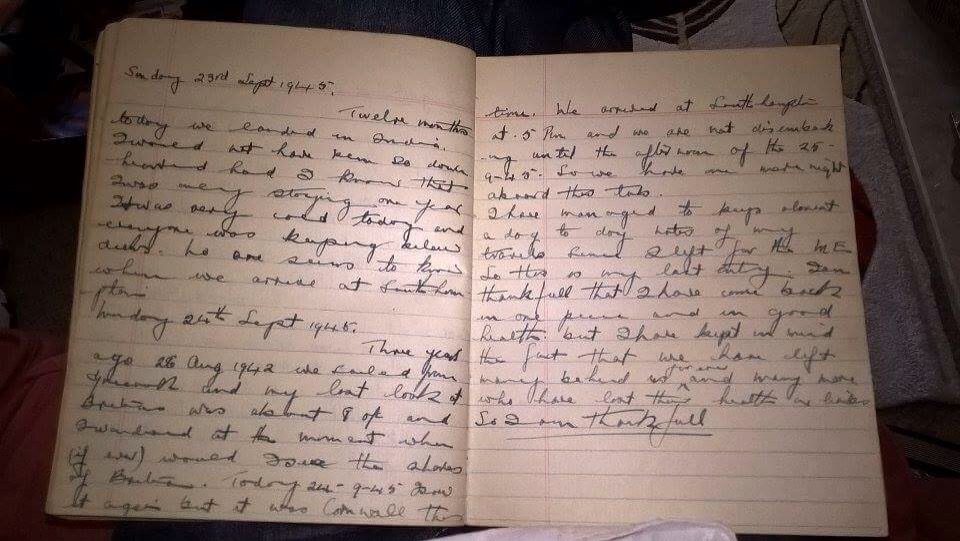 Sunday 23rd Sept 1945.
Twelve months
today we landed in India.
I would not have been so down
hearted had I know that
I was only staying one year
It was very cold today and
everyone was keeping below
decks. No one seems to know
when we arrive at Southam
pton
Monday 24th Sept 1945.
Three years
ago 28 Aug 1942 we sailed from
and my last look at
Britain was about 8 o/c and
I wondered at the moment when
(if ever) would I see the shores
of Britain. Today 24-9-45 I saw
it again but it was Cornwall this
time. We arrived at Southampton
at 5 Pm and we are not disembark
ing until the afternoon of the 25-
9-45. So we have one more night
aboard this tub.
I have managed to keep almost
a day to day notes of my
travels since I left for the M E
So this is my last entry. I am
thankfull that I have come back
in one piece and in good
health. but I have kept in mind
the fact that we have left
many behind for ever and many more
who have lost their health or
So I am thankfull